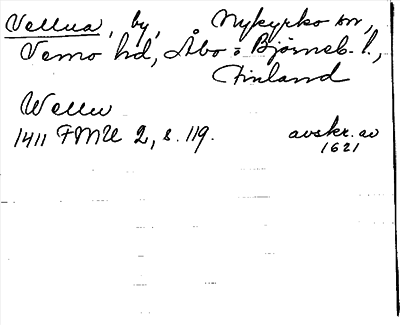 Vellua, by, Nykyrko sn,
Vemo hd, Åbo o Björneb. l.,
Finland
Wellu
1411 FMU 2, s. 119. avskr. av
1621